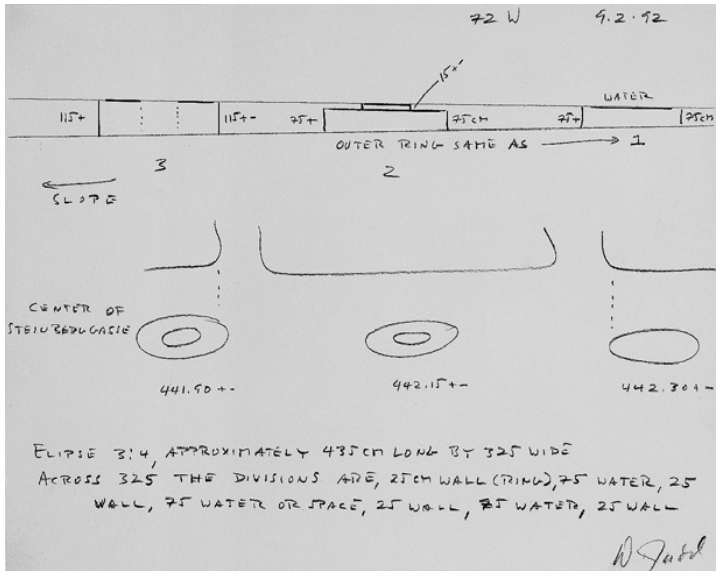 72 W 9.2.92
15+-
WATER
115+ 115+- 75+ 75CM 75+ 75CM
OUTER RING SAME AS 1
3 2
SLOPE
CENTER OF
441.90+- 442.15+- 442.30+-
ELIPSE 3:4, APPROXIMATELY 435CM LONG BY 325 WIDE
ACROSS 325 THE DIVISIONS ARE, 25CM WALL (RING), 75 WATER, 25
WALL, 75 WATER OR SPACE, 25 WALL, 75 WATER, 25 WALL